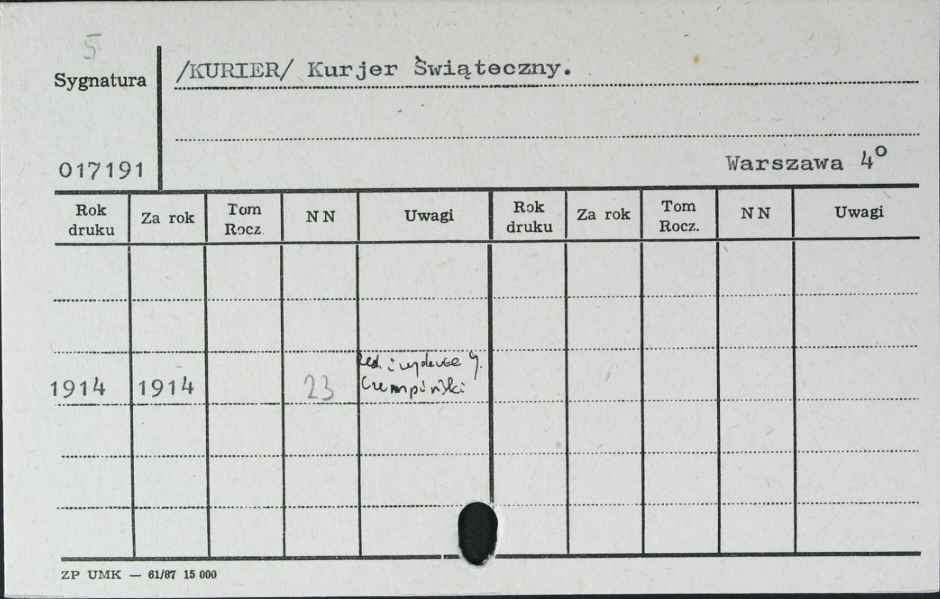 5
Sygnatura
/KURIER/ Kurjer Świąteczny.
017191
Warszawa 4°
Rok druku Za rok Tom Rocz. NN Uwagi Rok druku Za rok Tom Rocz. NN Uwagi
red. i wydawca
1914 1914 23 Czempiński
ZP UMK — 61/87 15 000